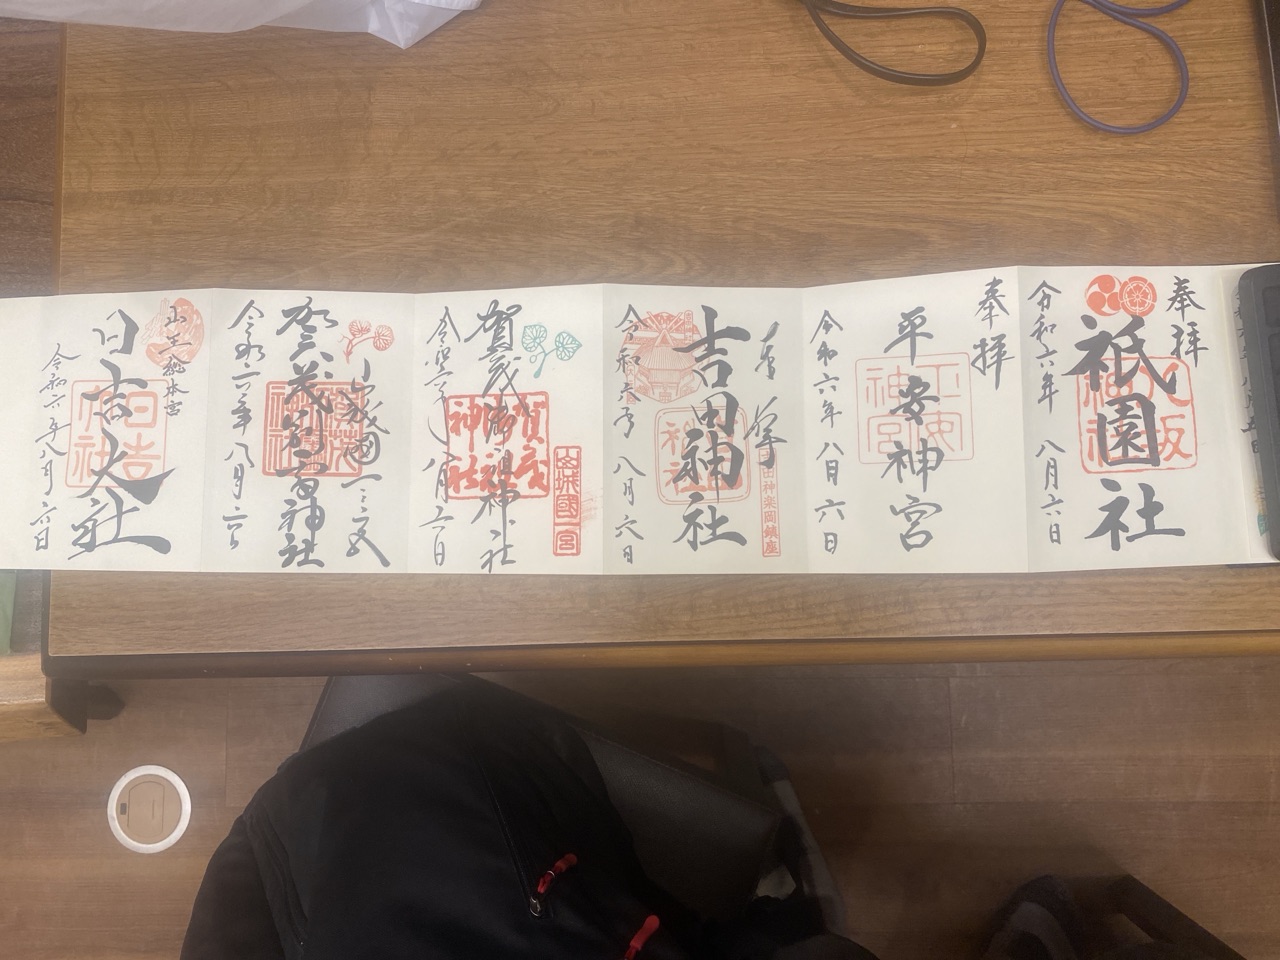 奉拝
祇園社
八坂神社
令和六年 八月六日
奉拝
平安神宮
平安神宮
令和六年 八月六日
奉拝
吉田神社
吉田神楽岡鎮座
令和六年 八月六日
賀茂御祖神社
賀茂御祖神社
山城國一宮
八月六日
山城國一之宮
賀茂別雷神社
令和六年八月六日
山王総本宮
日吉大社
日吉大社
令和六年八月六日